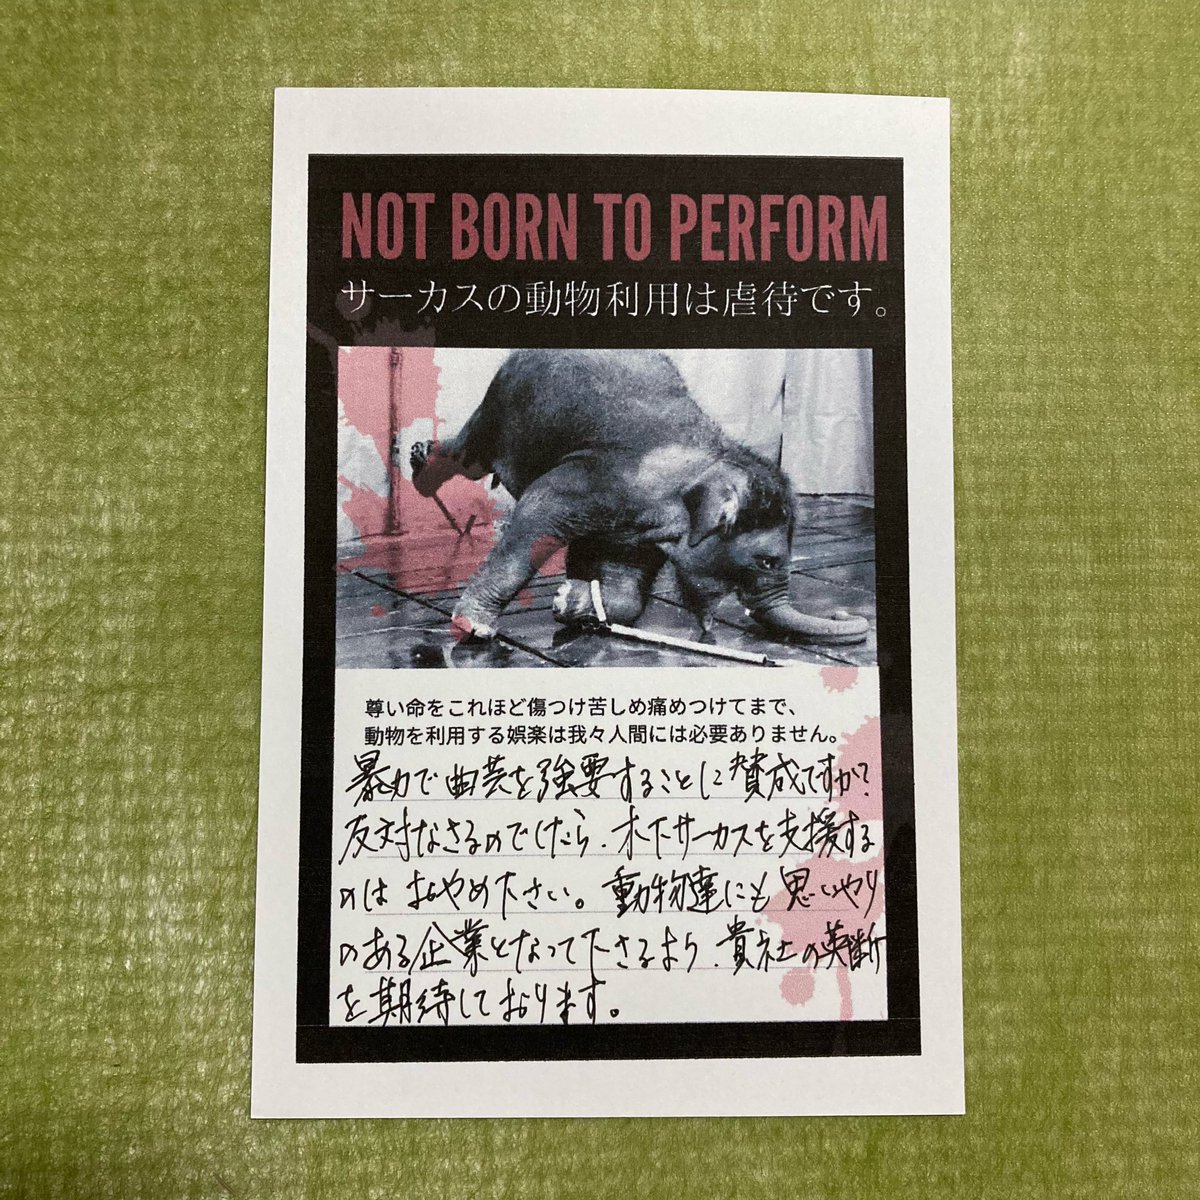 NOT BORN TO PERFORM
サーカスの動物利用は虐待です。
尊い命をこれほど傷つけ苦しめ痛めつけてまで、
動物を利用する娯楽は我々人間には必要ありません。
暴力で曲芸を強要することに賛成ですか?
反対なさるのでしたら、木下サーカスを支援する
のはおやめ下さい。動物達にも思いやり
のある企業となって下さるよう、貴社の英断
を期待しております。